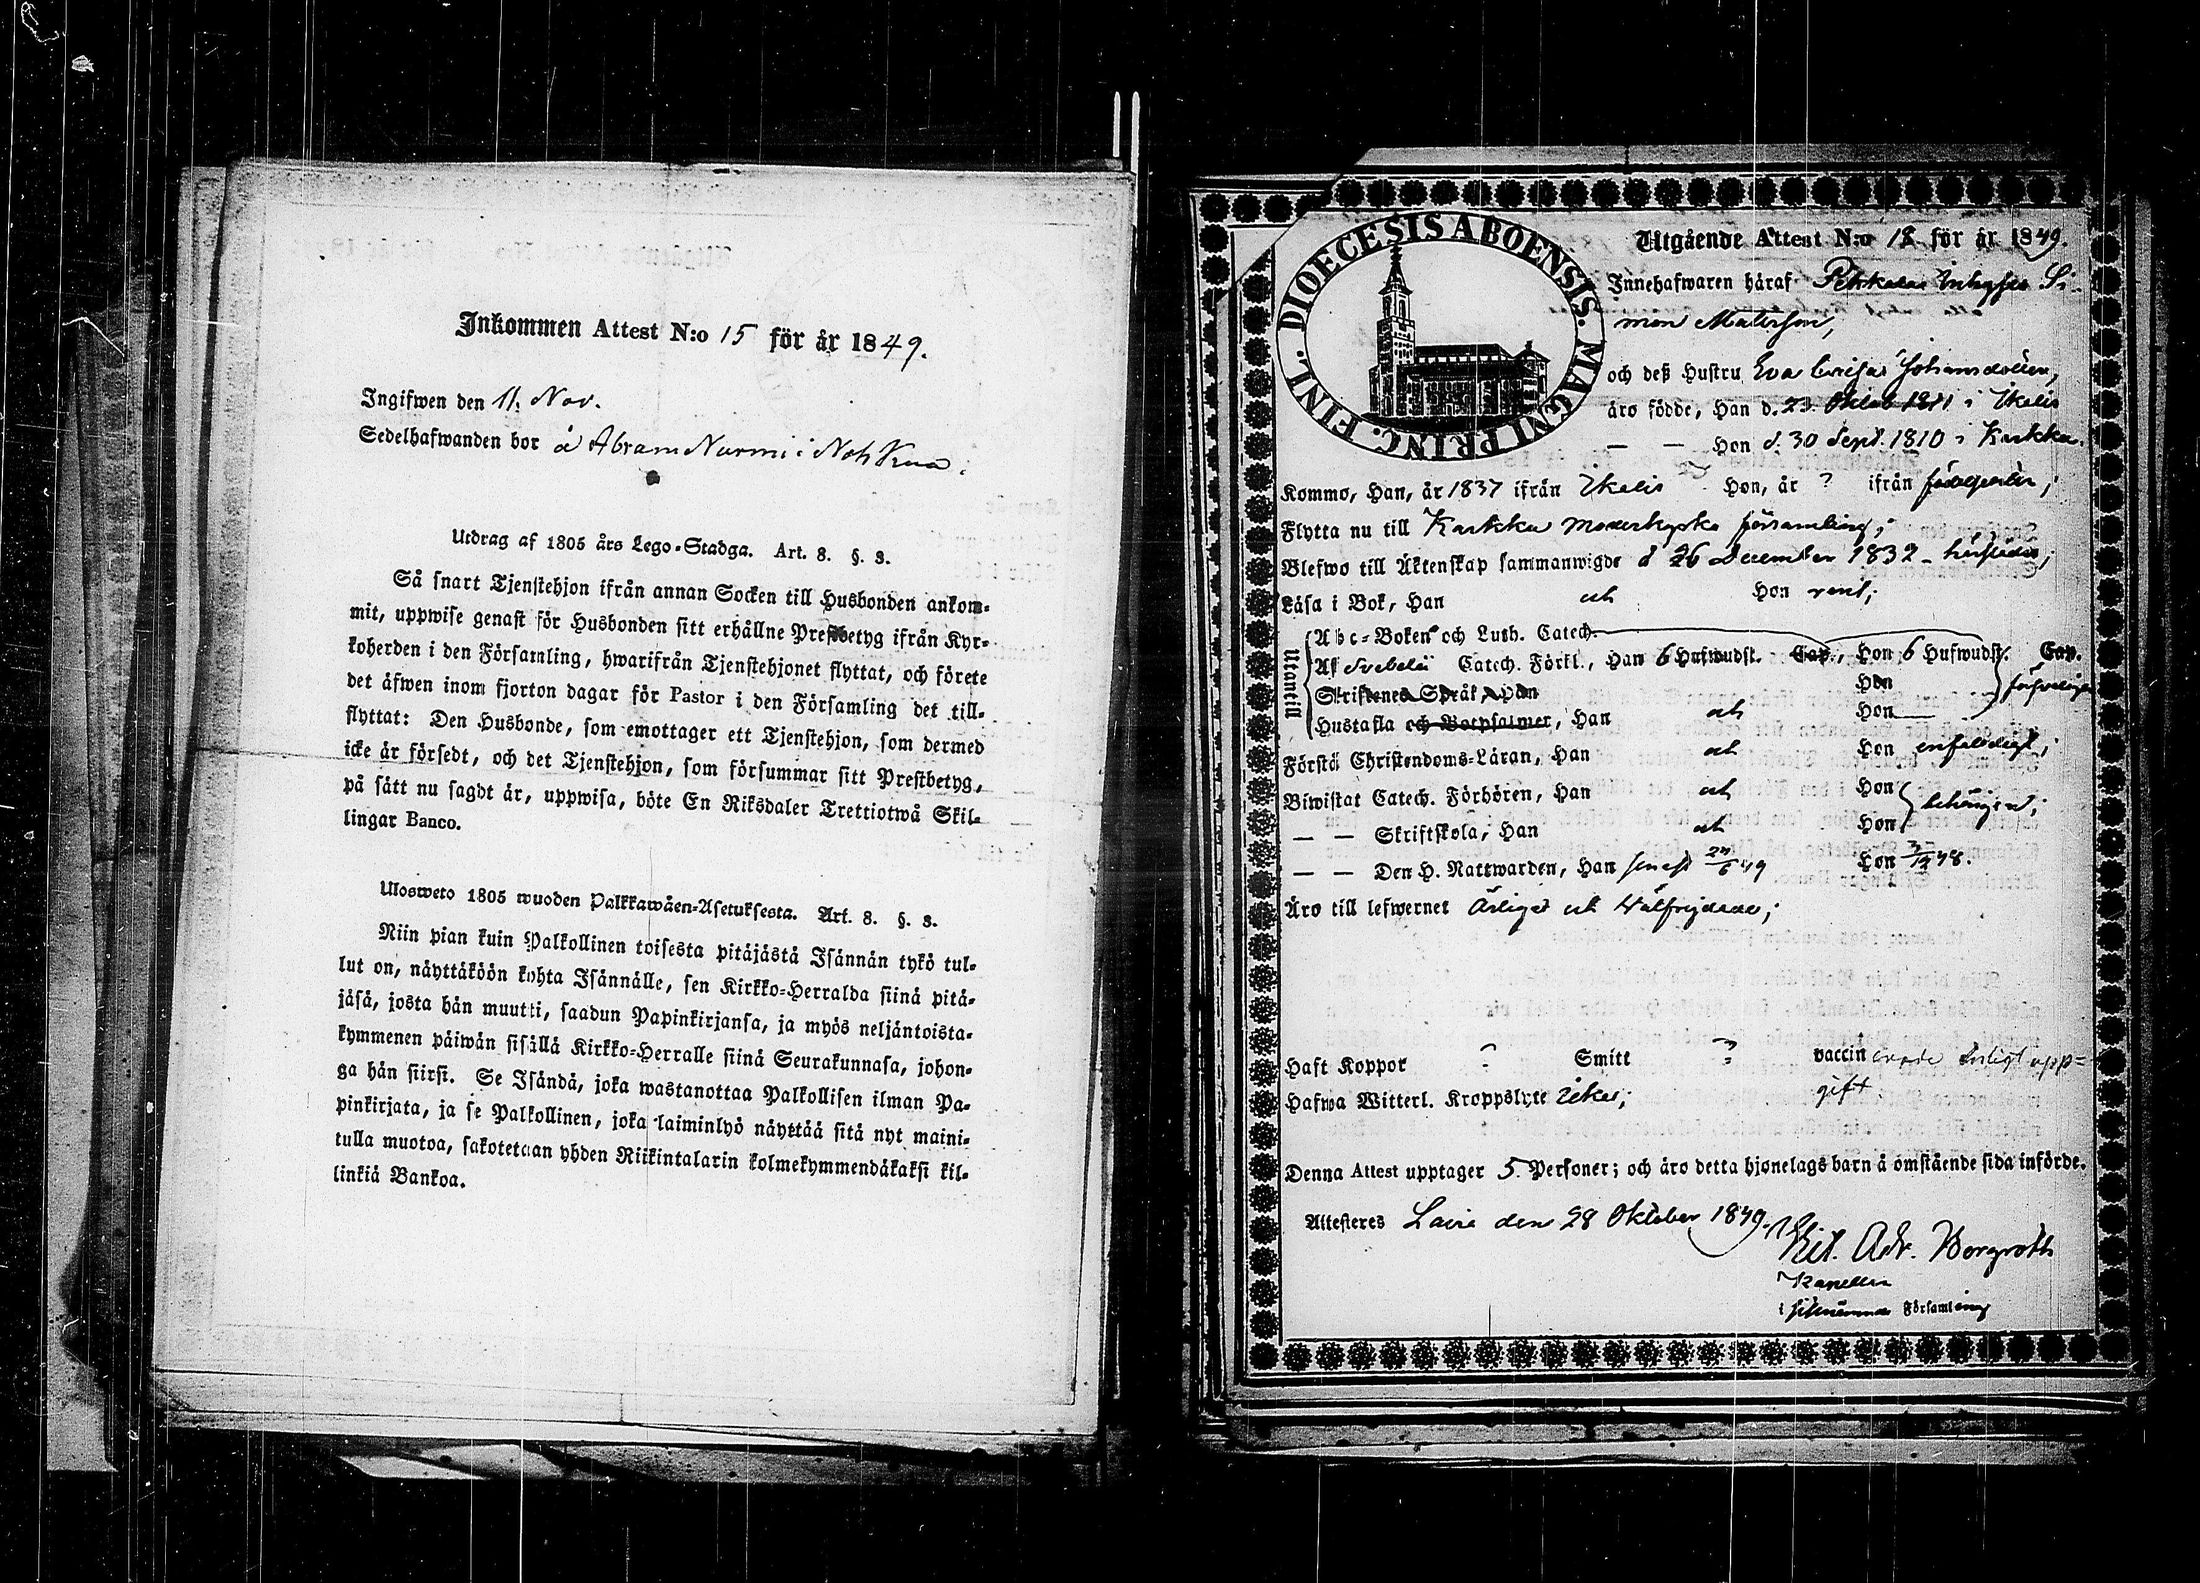 Inkommen Attest N:o 15 för år 1849.
Ingifwen den 11. Nov.
Sedelhafwanden bor å Abram Nurmi i
Utdrag af 1805 års Lego-Stadga. Art. 8. §. 3.
Så snart Tjenstehjon ifrån annan Socken till Husbonden ankom-
mit, uppwise genast för Husbonden sitt erhållne Prestbetyg ifrån Kyr-
koherden i den Församling, hwarifrån Tjenstehjonet flyttat, och förete
det äfwen inom fjorton dagar för Pastor i den Församling det till-
flyttat: Den Husbonde, som emottager ett Tjenstehjon, som dermed
icke är försedt, och det Tjenstehjon, som försummar sitt Prestbetyg,
på sätt nu sagdt är, uppwisa, böte En Riksdaler Trettiotwå Skil-
lingar Banco.
Ulosweto 1805 wuoden Palkkawäen-Asetuksesta. Art. 8. §. 3.
Niin pian kuin Palkollinen toisesta pitäjästä Isännän tykö tul-
lut on, näyttäköön kohta Isännälle, sen Kirkko-Herralda siinä pitä-
jäsä, josta hän muutti, saadun Papinkirjansa, ja myös neljäntoista-
kymmenen päiwän sisällä Kirkko-Herralle siinä Seurakunnasa, johon-
ga hän siirsi. Se Isändä, joka wastanottaa Palkollisen ilman Pa-
pinkirjata, ja se Palkollinen, joka laiminlyö näyttää sitä nyt maini-
tulla muotoa, sakotetaan yhden Riikintalarin kolmekymmendäkaksi kil-
linkiä Bankoa.
DIOECESIS ABOENSIS. MAGNI PRINC. FINL.
Utgående Attest N:o 18 för år 1849.
Innehafwaren häraf Pekkalas Inhyses Si-
mon Matsson,
och deß Hustru Eva Cajsa Johansdotter,
äro födde, Han d. 23 Oktob 1811 i Ikalis
— — Hon d. 30 Sept. 1810 i Karkku.
Kommo, Han, år 1837 ifrån Ikalis Hon, år ? ifrån
Flytta nu till Karkku moderkyrko församling;
Blefwo till Äktenskap sammanwigde d 26 December 1832 - härstädes;
Läsa i Bok, Han och Hon rent;
Utantill
Abc-Boken och Luth. Catech.
Af Svebelii Catech. Förkl., Han 6 Hufwudst. Cap., Hon 6 Hufwudst. Cap.
Skriftenes Språk Han Hon
Hustafla och Botpsalmer, Han och Hon
Förstå Christendoms-Läran, Han och Hon enfaldigt;
Biwistat Catech. Förhören, Han och Hon behörigen;
— — Skriftskola, Han och Hon
— — Den H. Nattwarden, Han senast 24/6 49 Hon 48.
Äro till lefwernet Ärliga och Wälfrejdade;
Haft Koppor ? Smitt ? vaccinerade enligt upp=
gift
Hafwa Witterl. Kroppslyte icke;
Denna Attest upptager 5 Personer; och äro detta hjonelags barn å omstående sida införde.
Attesteres Lavia den 28 Oktober 1849.
Adr. Borgroth
Kapellan
i församling